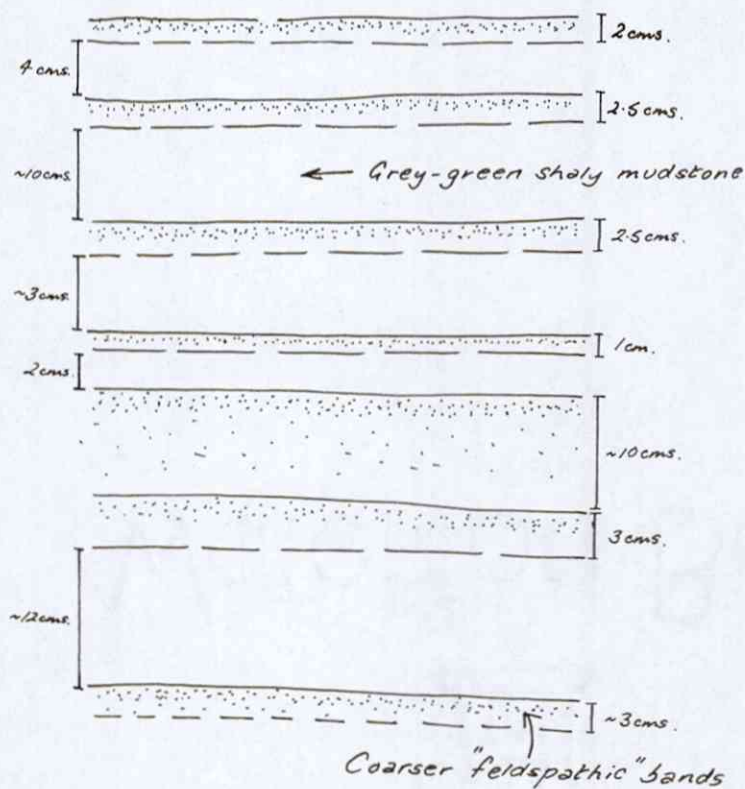 2 cms.
4 cms.
2.5 cms.
~10 cms.
← Grey-green shaly mudstone
2.5 cms.
~3 cms.
1 cm.
2 cms.
~10 cms.
3 cms.
~12 cms.
~3 cms.
Coarser "feldspathic" bands